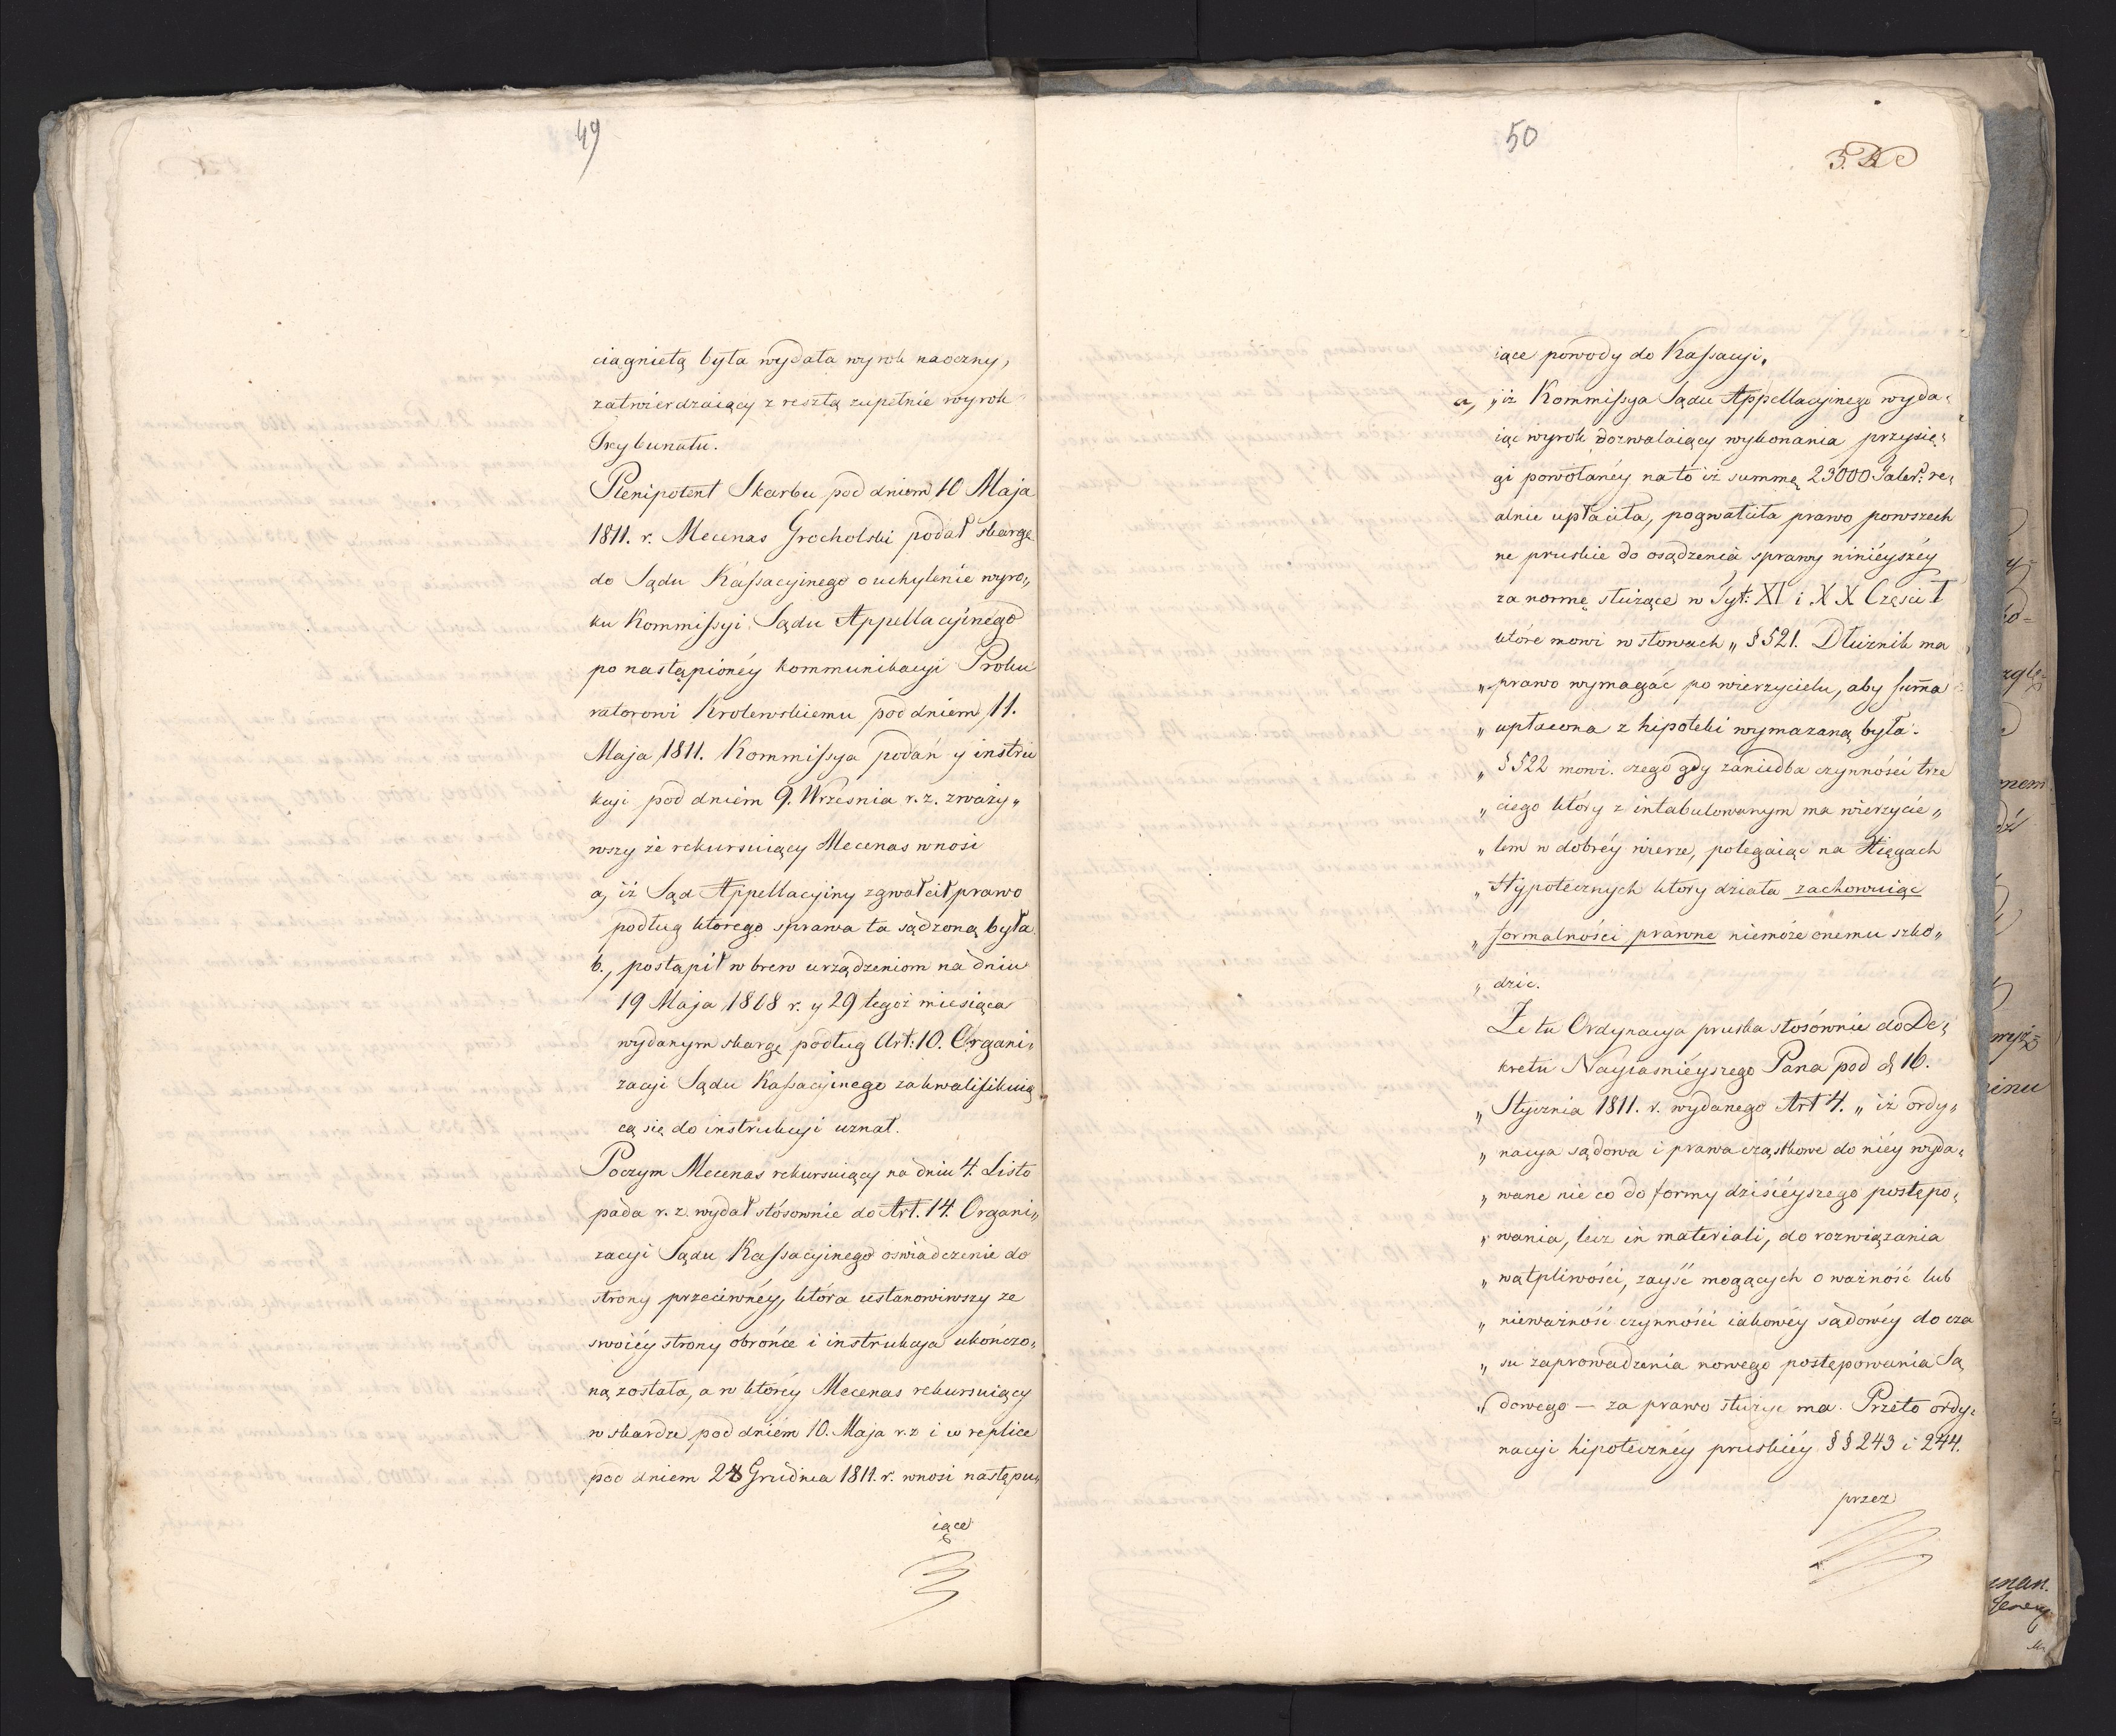 49
ciągnietą była wydała wyrok naoczny,
zatwierdzaiący z resztą zupełnie wyrok
Trybunału.
Plenipotent Skarbu pod dniem 10 Maja
1811. r. Mecenas Grocholski podał skargę
do Sądu Kassacyjnego o uchylenie wyro„
ku Kommissyi Sądu Appellacyinego
po nastąpionéy kommunikacyi Proku
ratorowi Krolewskiemu pod dniem 11.
Maja 1811. Kommissya podań y instru
kcyi pod dniem 9. Września r. z. zważy„
wszy że rekursuiący Mecenas wnosi
a, iż Sąd Appellacyiny zgwałcił prawo
podług ktorego sprawa ta sądzoną była.
b., postąpił w brew urządzeniom na dniu
19 Maja 1808 r. y 29 tegoż miesiąca
wydanym skargę podług Art: 10. Organi„
zacyi Sądu Kassacyinego zakwalifikuią
cą się do instrukcyi uznał.
Poczym Mecenas rekursuiący na dniu 4. Listo
pada r. z. wydał stósownie do Art. 14. Organi„
zacyi Sądu Kassacyinego oświadczenie do
strony przeciwnéy, która ustanowiwszy ze
swoiéy strony obrońcę i instrukcya ukończo„
ną została, a w któréy Mecenas rekursuiący
w skardze pod dniém 10. Maja r. z i w replice
pod dniem 28 Grudnia 1811. r. wnosi następu„
iące
50
iące powody do Kassacyi.
a, „iż Kommissya Sądu Appellacyinego wyda„
iąc wyrok dozwalaiący wykonania przysię„
gi powołanéy na to iż summę 23000 Taler: re„
alnie upłaciła, pogwałciła prawo powszech
ne pruskie do osądzenia sprawy niniéyszéy
za normę służące w Tyt: XI i XX Części I
które mowi w słowach „§ 521. Dłużnik ma
„prawo wymagać po wierzycielu, aby summa
„upłacona z hipoteki wymazaną była.
„§ 522 mowi. czego gdy zaniedba czynności trze
„ciego który z intabulowanym ma wierzycie„
„lem w dobréy wierze, polegaiąc na Xięgach
„Hypotecznych ktory działa zachowuiąc
„formalności prawne niemoże onemu szko„
„dzic.
Że tu Ordynacya pruska stósównie do De„
kretu Nayiaśniéyszego Pana pod d 16.
„Stycznia 1811. r. wydanego Art 4. „ iż ordy„
„nacya sądowa i prawa cząstkowe do niéy wyda„
„wane nie co do formy dzisiéyszego postępo„
„wania, lecz in materiali, do rozwiązania
„wątpliwości, zayść mogących o ważność lub
„nieważność czynności iakowéy sądowéy do cza
„su zaprowadzenia nowego postępowania Są
„dowego — za prawo służyć ma. Przeto ordy„
nacyi hipotecznéy pruskiéy §§ 243 i 244.
przez